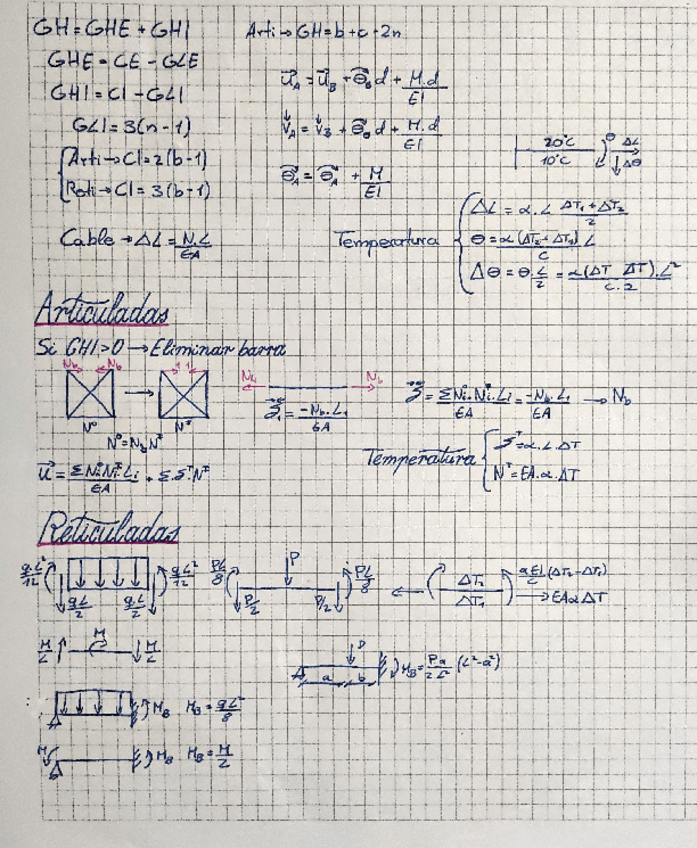 GH = GHE + GHI
Arti → GH = b + c - 2n
GHE = CE - GLE
GHI = CI - GLI
GLI = 3(n-1)
Arti → CI = 2(b-1)
Roti → CI = 3(b-1)
Cable → ΔL = N.L/EA
u_A = u_B + θ_B d + M.d/EI
v_A = v_B + θ_B d + M.d/EI
θ_A = θ_A + M/EI
20°C θ ΔL
10°C Δθ
Temperatura
ΔL = α.L ΔT₁+ΔT₂/2
θ = α(ΔT₂-ΔT₁)/C L
Δθ = θ.L/2 = α(ΔT-ΔT).L²/C.2
Articuladas
Si GHI>0 → Eliminar barra
N_b N_b 1 1 N_b N_b
N⁰ N^I
N⁰ = N_b N^I
ξ₁ = -N_b.L₁/EA
ξ = ΣN_i.N_i^I.L_i/EA = -N_b.L₁/EA → N_b
u = ΣN_i N_i^I L_i/EA + Σ.ξ^T N^I
Temperatura
ξ^T = α.L.ΔT
N^T = EA.α.ΔT
Reticuladas
q.L²/12 q.L²/12 q.L/2 q.L/2
PL/8 P PL/8 P/2 P/2
ΔT₂ ΔT₁ αEI/C (ΔT₂-ΔT₁)
EAαΔT
M/L M M/L
P a b M_B = Pa/2L² (L²-a²)
M_B M_B = qL²/8
M M_B M_B = M/2